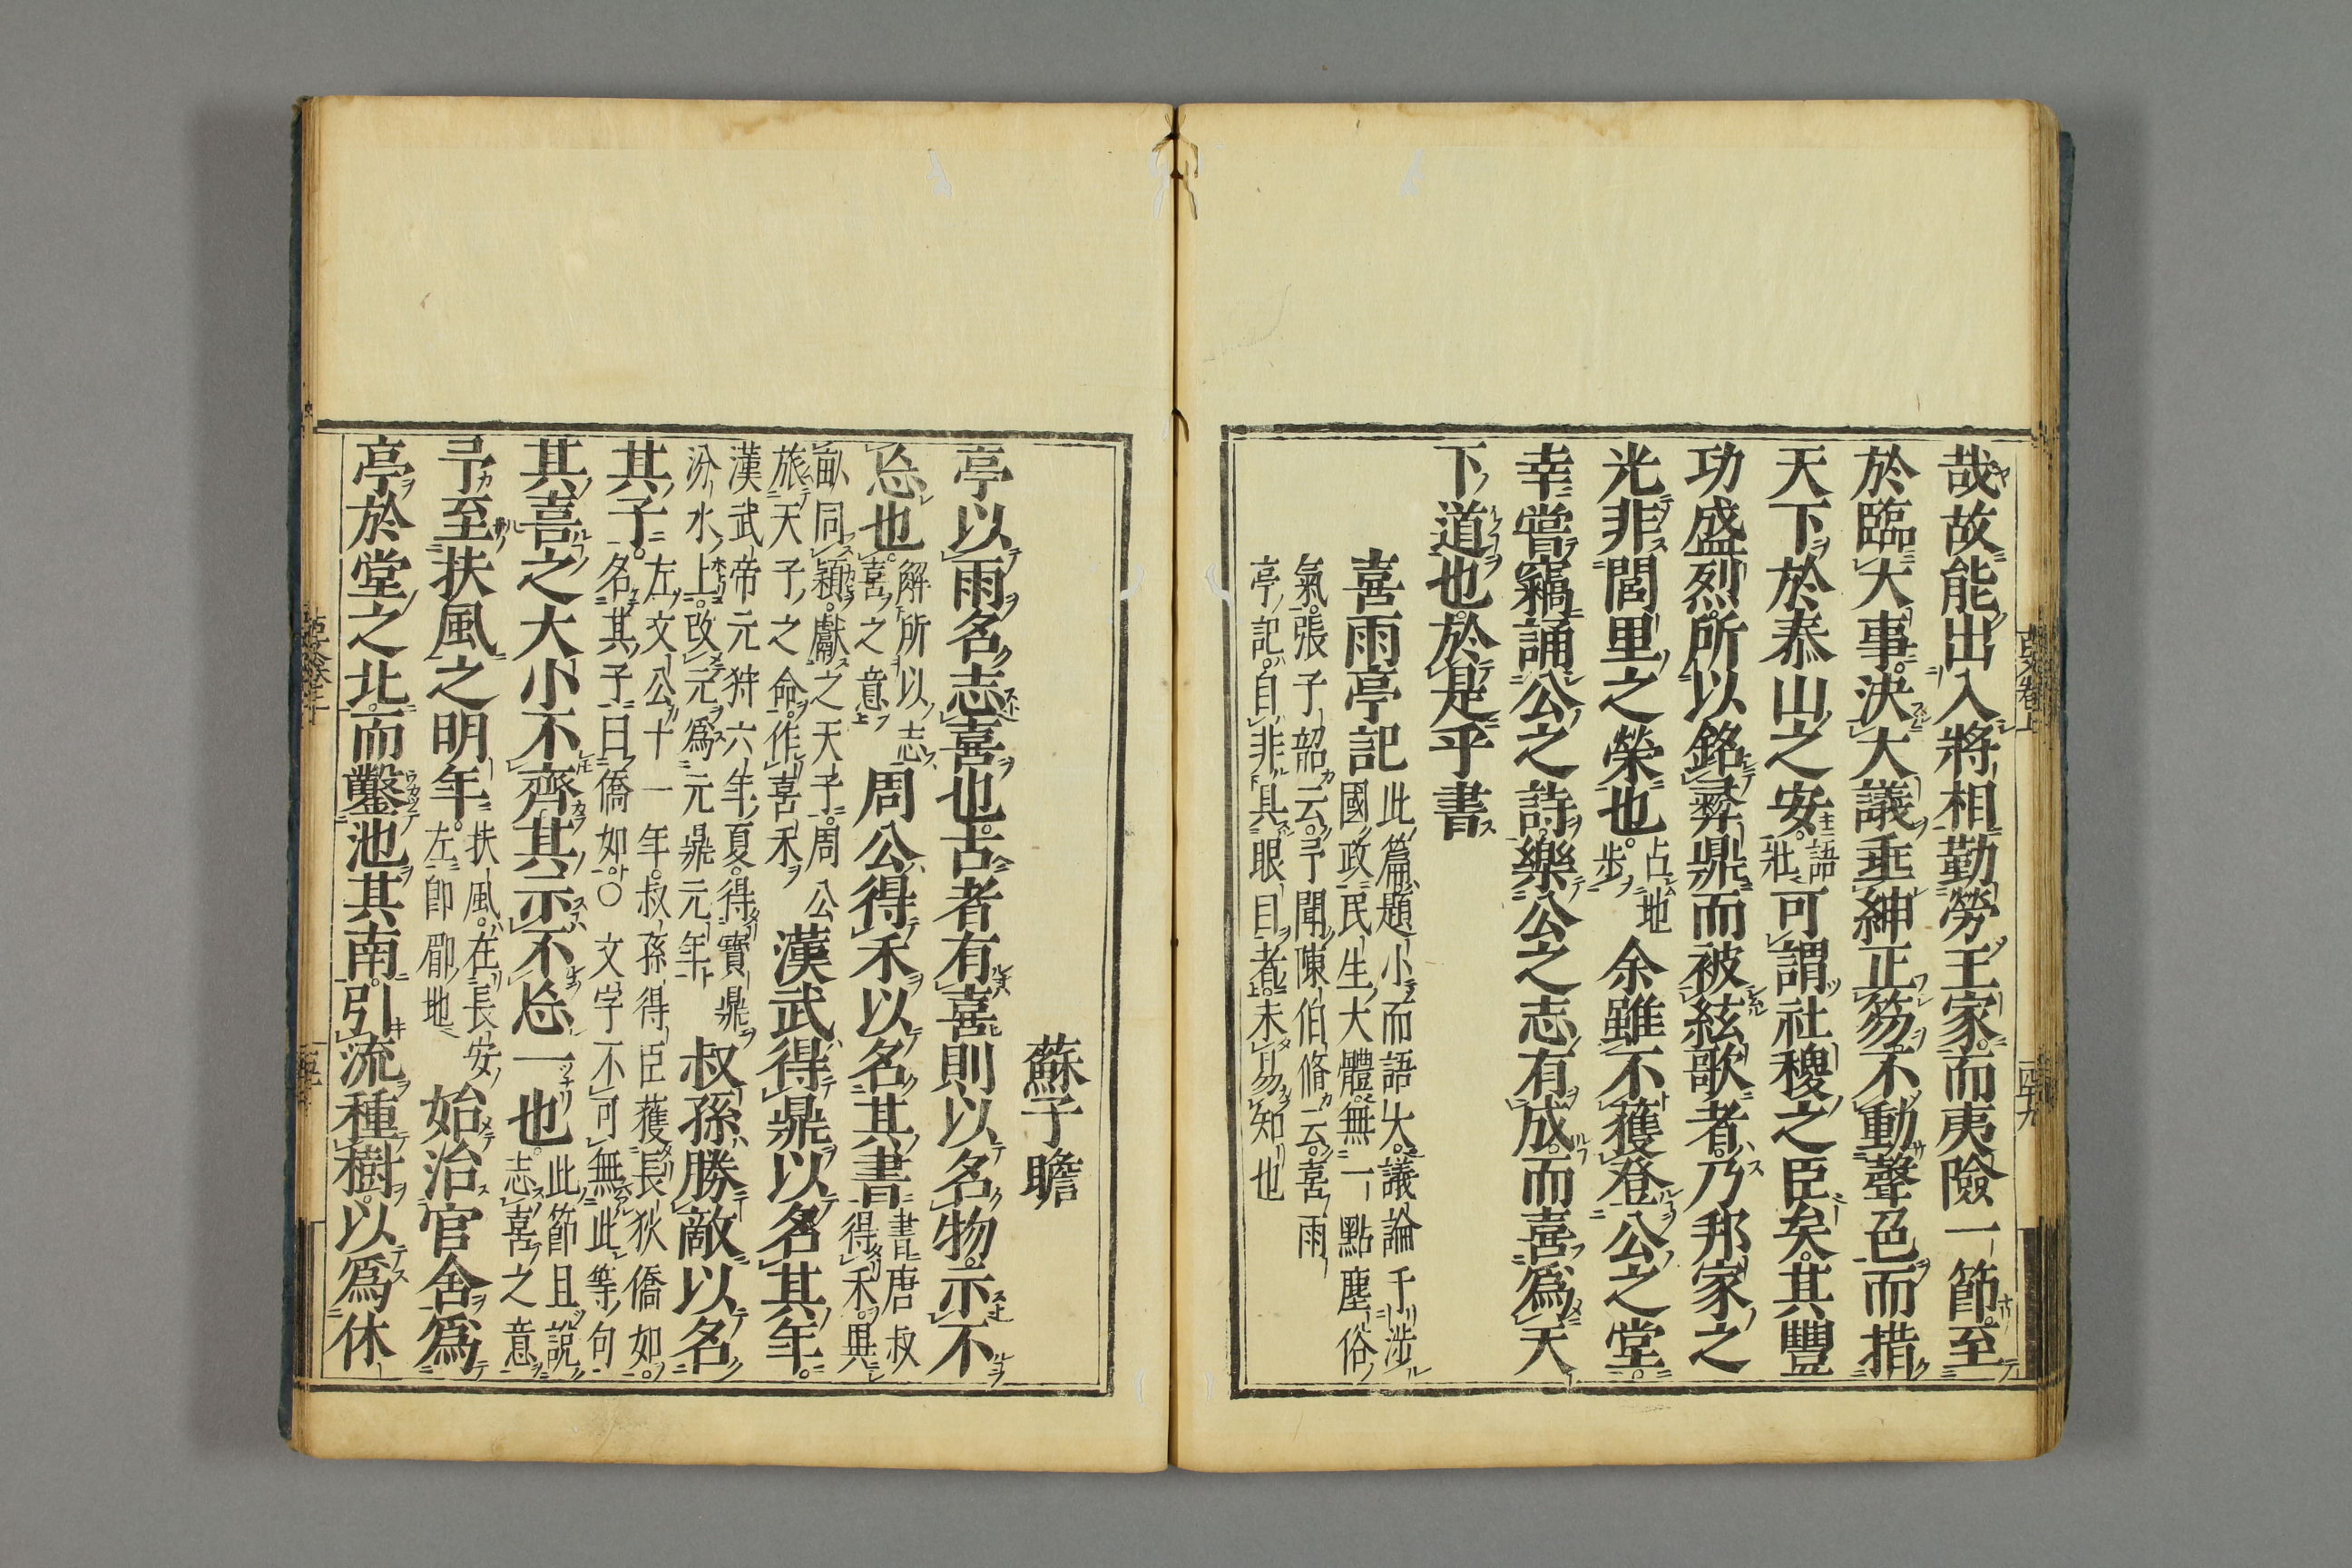 哉故能出入將相勤勞王家而夷險一節至
於臨大事決大議垂紳正笏不動聲色而措
天下於泰山之安語壯可謂社稷之臣矣其豐
功盛烈所以銘彛鼎而被絃歌者乃邦家之
光非閭里之榮也占地步余雖不獲登公之堂
幸嘗竊誦公之詩樂公之志有成而喜爲天
下道也於是乎書
喜雨亭記此篇題小而語大議論干涉
國政民生大體無一點塵俗
氣張子韶云予聞陳伯脩云喜雨
亭記自非具眼目者未易知也
蘇子瞻
亭以雨名志喜也古者有喜則以名物示不
忘也解所以志喜之意周公得禾以名其書書唐叔得禾異
畝同穎獻之天子周公
旅天子之命作嘉禾漢武得鼎以名其年
漢武帝元狩六年夏得寶鼎
汾水上改元爲元鼎元年叔孫勝敵以名
其子左文公十一年叔孫得臣獲長狄僑如
名其子曰僑如○文字不可無此等句
其喜之大小不齊其示不忘一也此節且說志喜之意
予至扶風之明年扶風在長安左即郿地始治官舍爲
亭於堂之北而鑿池其南引流種樹以爲休